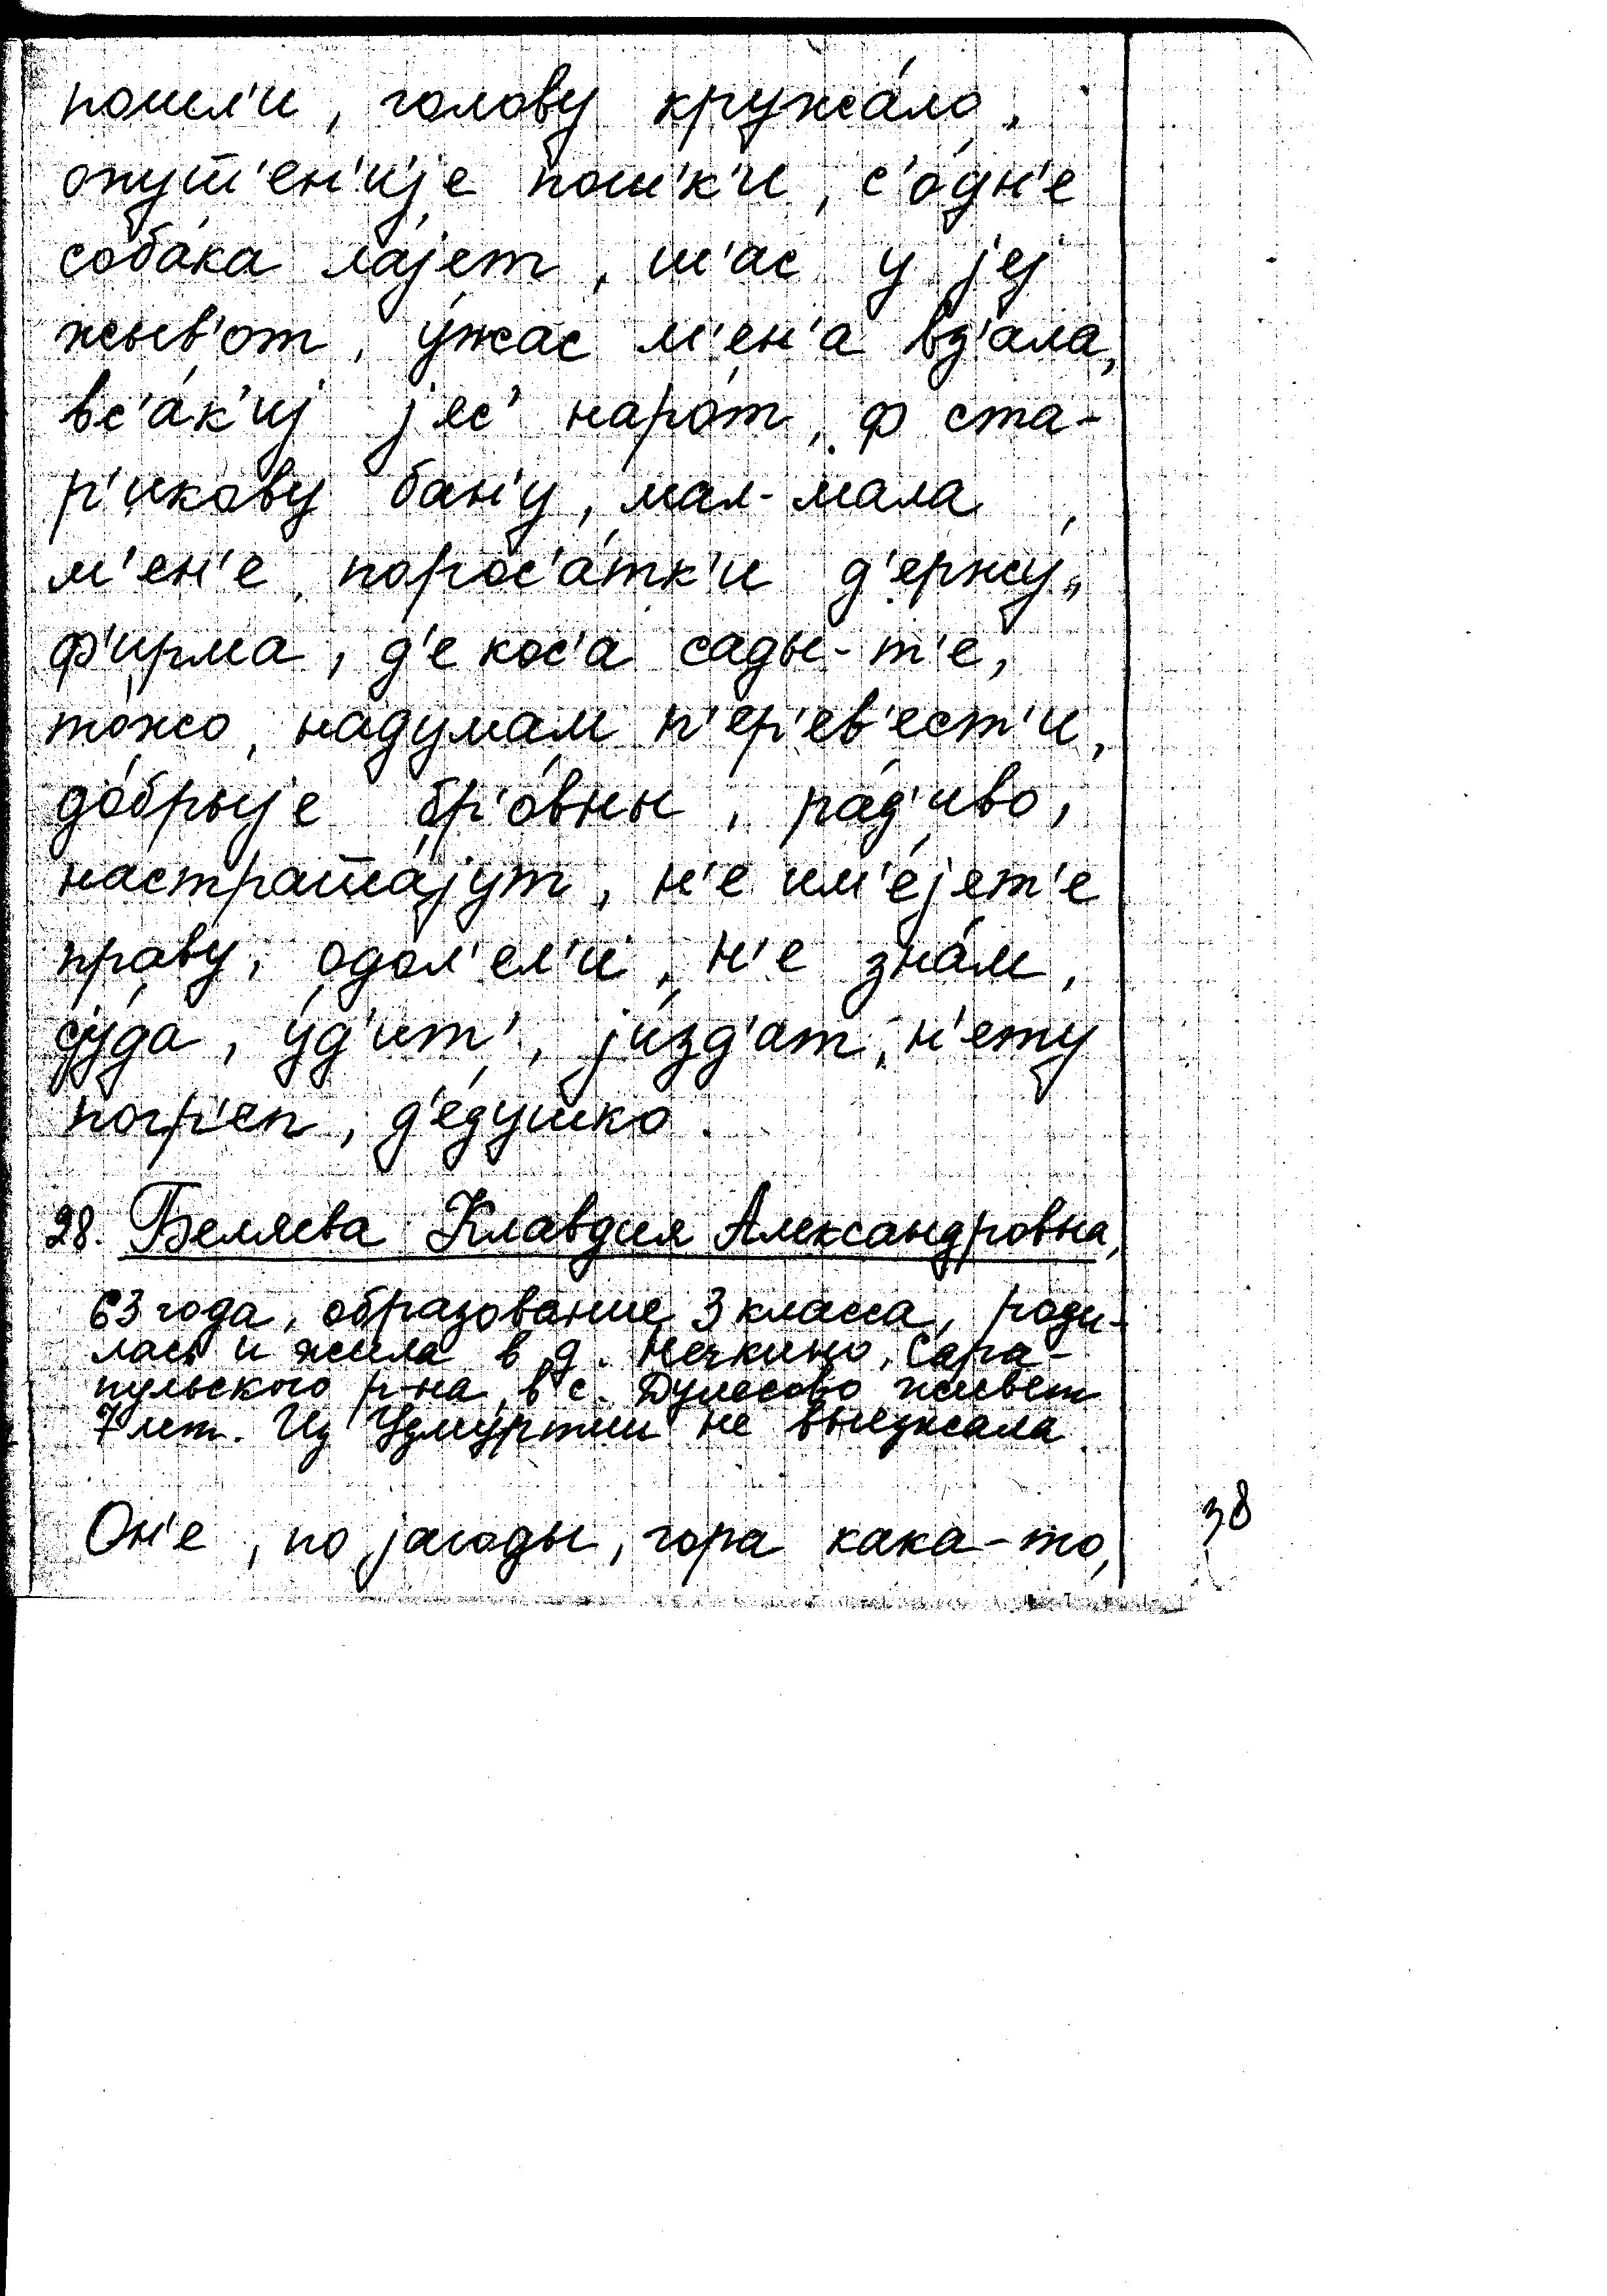 пошл'и, голову кружа́ло,
опуш'ен'иjе пош'к'и, с'о́дн'е
соба́ка ла́jет, ш'ас у jеj
жыв'от, у́жас м'ен'а вз'ала,
вс'а́к'иj jес' наро́т, ф ста-
р'икову бан'у, мал-мала,
м'ен'е, порос'а́тк'и д'ержу́,
ф'ирма, д'е кос'а сады-т'е,
то́жо, наду́мам п'ер'ев'ест'и,
до́брыjе бр'о́вны, ра́д'иво,
настраша́jут, н'е им'е́jет'е
праву, одол'ел'и, н'е зна́м,
суда, уд'ит', jи́зд'ат, н'ету
погр'еп, д'е́душко.
28. Беляева Клавдия Александровна,
63 года, образование 3 класса, роди-
лась и жила в д. Нечкино, Сара-
пульского р-на, в с. Дулесово живет
7 лет. Из Удмуртии не выезжала
Он'е, по jагоды, гора кака-то,
38